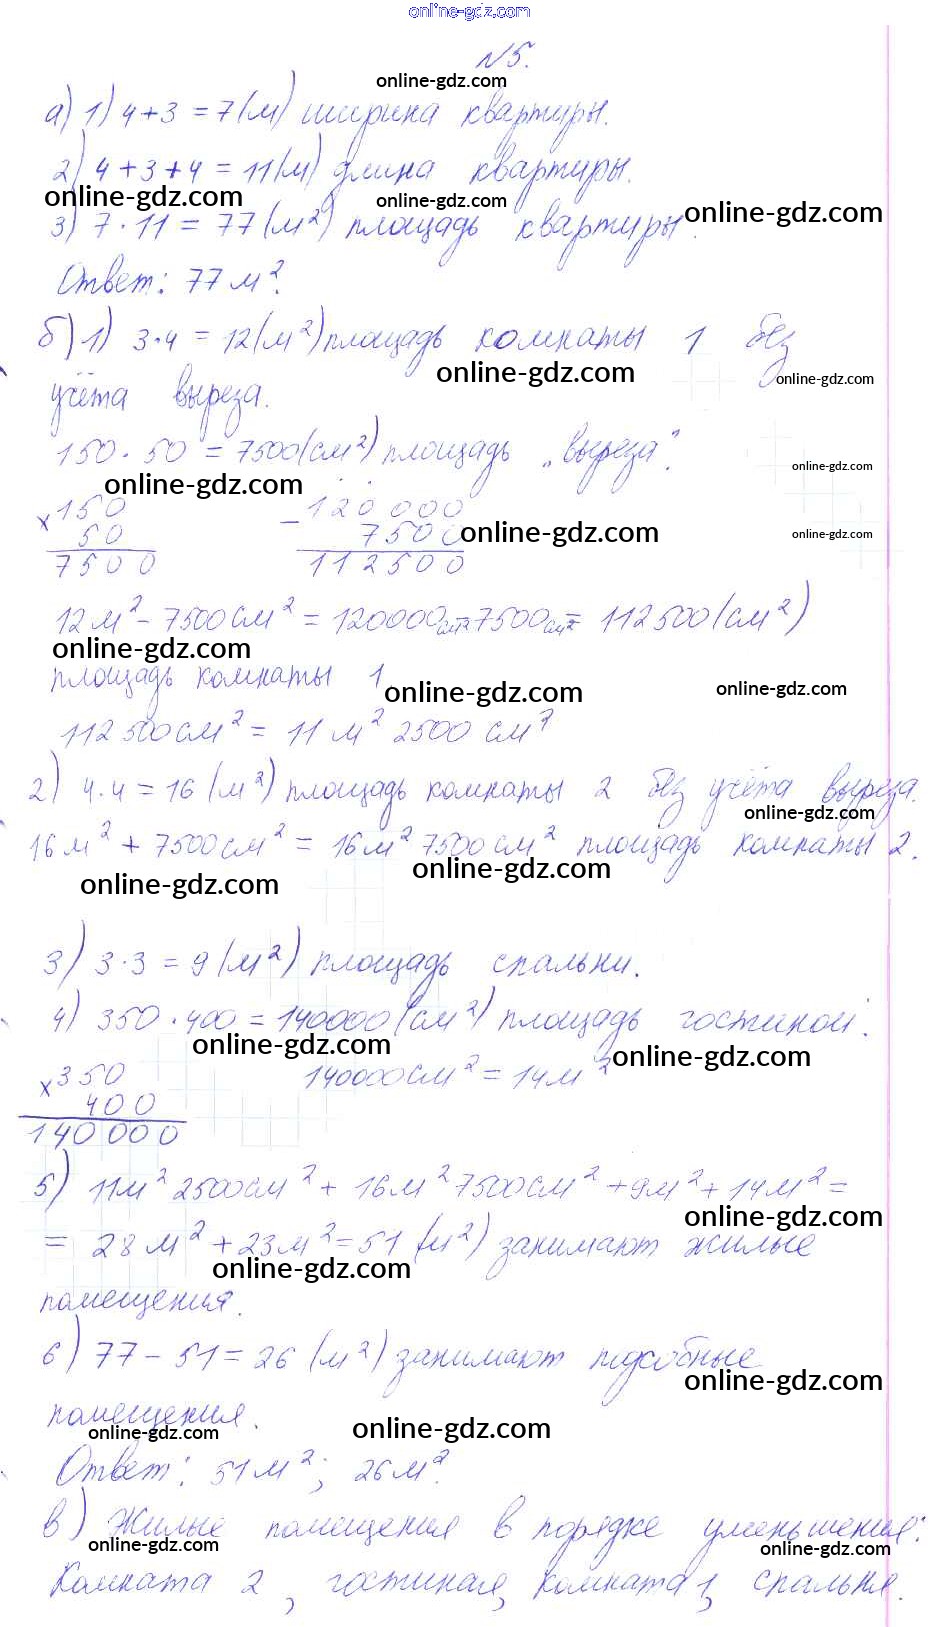 online-gdz.com
№5.
online-gdz.com
а) 1) 4+3 = 7(м) ширина квартиры.
2) 4+3+4 = 11(м) длина квартиры.
online-gdz.com online-gdz.com online-gdz.com
3) 7·11 = 77(м²) площадь квартиры.
Ответ: 77м².
б) 1) 3·4 = 12(м²) площадь комнаты 1 без
online-gdz.com online-gdz.com
учёта выреза.
150·50 = 7500(см²) площадь „выреза”.
online-gdz.com online-gdz.com
×150 −120000
50 7500
online-gdz.com online-gdz.com
7500 112500
12м² − 7500см² = 120000см²−7500см² = 112500(см²)
online-gdz.com
площадь комнаты 1
online-gdz.com online-gdz.com
112500см² = 11м² 2500см²
2) 4·4 = 16(м²) площадь комнаты 2 без учёта выреза.
online-gdz.com
16м² + 7500см² = 16м² 7500см² площадь комнаты 2.
online-gdz.com online-gdz.com
3) 3·3 = 9(м²) площадь спальни.
4) 350·400 = 140000(см²) площадь гостиной.
online-gdz.com online-gdz.com
×350 140000см² = 14м²
400
140000
5) 11м² 2500см² + 16м² 7500см² + 9м² + 14м² =
online-gdz.com
= 28м² + 23м² = 51(м²) занимают жилые
online-gdz.com
помещения.
6) 77 − 51 = 26(м²) занимают подсобные
online-gdz.com
помещения.
online-gdz.com online-gdz.com
Ответ: 51м²; 26м².
в) Жилые помещения в порядке уменьшения:
online-gdz.com online-gdz.com
Комната 2, гостиная, комната 1, спальня.